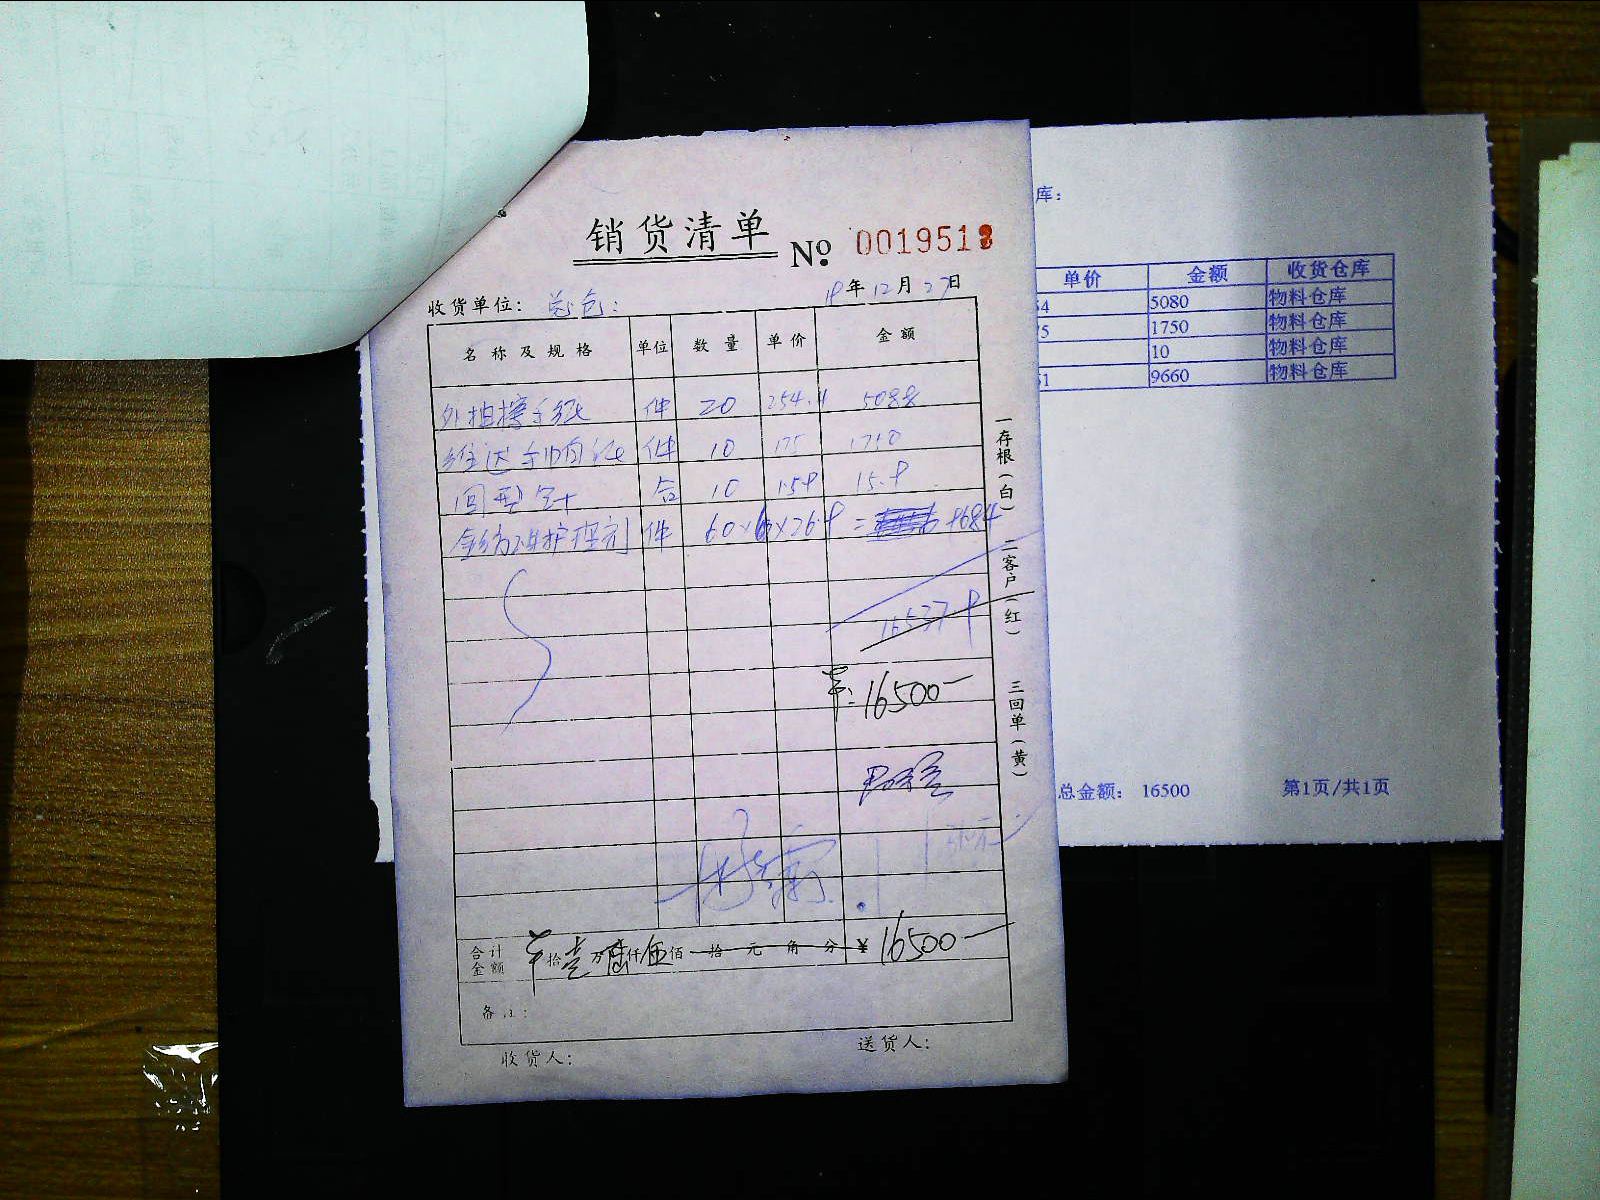 销货清单
No 0019518
收货单位： 总仓：
19年12月27日
名称及规格 单位 数量 单价 金额
外抽擦手纸 件 20 254.4 5088
维达手帕纸 件 10 175 1750
回型针 合 10 1.59 15.9
件 60×6×26.9 = 9684
16537.9
16500—
合计金额 拾壹万陆仟伍佰 拾 元 角 分 ¥ 16500—
备注：
收货人： 送货人：
一存根（白） 二客户（红） 三回单（黄）
库：
单价 金额 收货仓库
54 5080 物料仓库
75 1750 物料仓库
10 物料仓库
61 9660 物料仓库
总金额： 16500 第1页/共1页